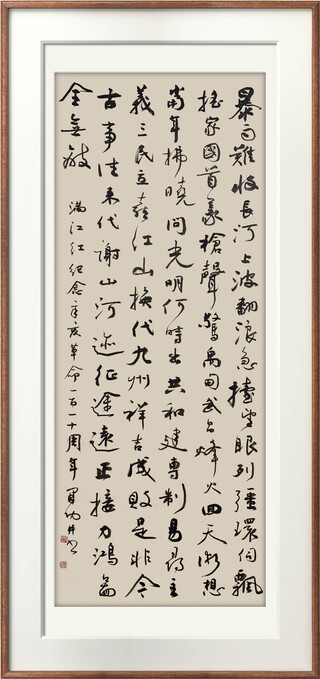 暴雨難收長河上波翻浪急擡望眼列强環伺飄
搖家國首義槍聲驚禹甸武昌烽火回天想
當年拂曉問光明何時出共和建專制易尋主
義三民立喜江山換代九州祥吉成敗是非今
古事往來代謝山河迹征途遠正接力鴻圖
全無敵
滿江紅紀念辛亥革命一百一十周年